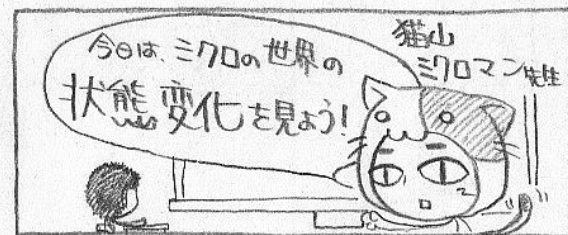 今日は、ミクロの世界の
状態変化を見よう!
猫山
ミクロマン先生